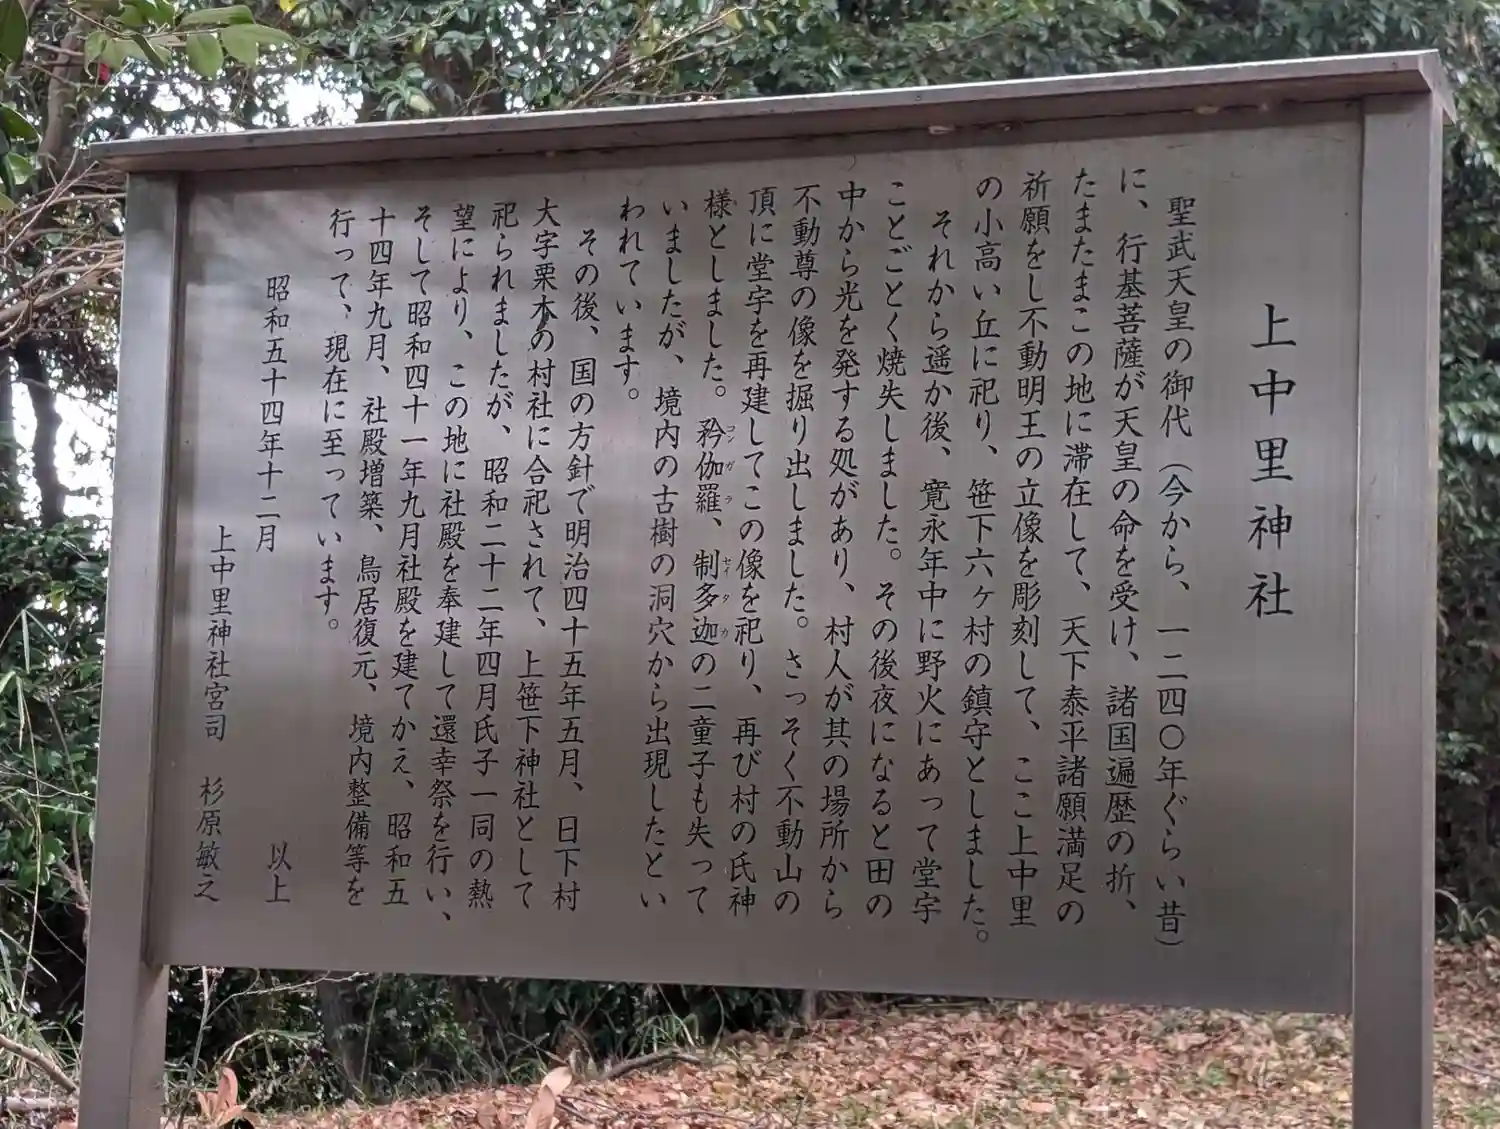 上中里神社
聖武天皇の御代（今から、一二四〇年ぐらい昔）
に、行基菩薩が天皇の命を受け、諸国遍歴の折、
たまたまこの地に滞在して、天下泰平諸願満足の
祈願をし不動明王の立像を彫刻して、ここ上中里
の小高い丘に祀り、笹下六ヶ村の鎮守としました。
それから遥か後、寛永年中に野火にあって堂宇
ことごとく焼失しました。その後夜になると田の
中から光を発する処があり、村人が其の場所から
不動尊の像を掘り出しました。さっそく不動山の
頂に堂宇を再建してこの像を祀り、再び村の氏神
様としました。矜伽羅、制多迦の二童子も失って
いましたが、境内の古樹の洞穴から出現したとい
われています。
その後、国の方針で明治四十五年五月、日下村
大字栗木の村社に合祀されて、上笹下神社として
祀られましたが、昭和二十二年四月氏子一同の熱
望により、この地に社殿を奉建して還幸祭を行い、
そして昭和四十一年九月社殿を建てかえ、昭和五
十四年九月、社殿増築、鳥居復元、境内整備等を
行って、現在に至っています。
以上
昭和五十四年十二月
上中里神社宮司　杉原敏之